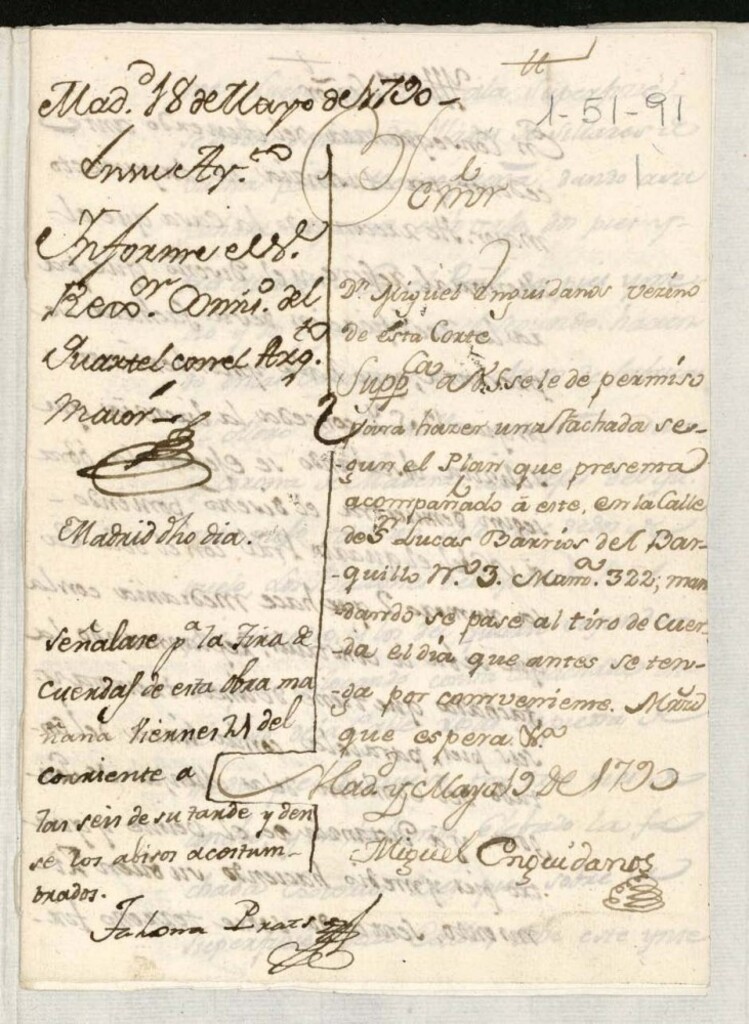 Mad.d 18 de Mayo de 1790
En su Ay.to
Informe el S.r
Rexo.or Comis.o del
Quartel con el Arq.to
maior
Madrid dho dia.
señalase p.a la Tira de
cuerdas de esta obra ma
ñana Viernes 21 del
corriente a
las seis de su tarde y den
se los abisos acostum-
brados.
Prats
1-51-91
Señor
D.n Miguel Enguidanos vezino
de esta Corte
Supp.ca a V.S. se le de permiso
para hazer una fachada se-
gun el Plan que presenta
acompañado á este, en la Calle
de S.n Lucas Barrios del Bar-
-quillo N.o 3. Manz.a 322; man
dando se pase al tiro de Cuer-
-da el dia que antes se ten-
-ga por combeniente.
que espera &.a
Mad. y Mayo 19 de 1790
Miguel Enguidanos